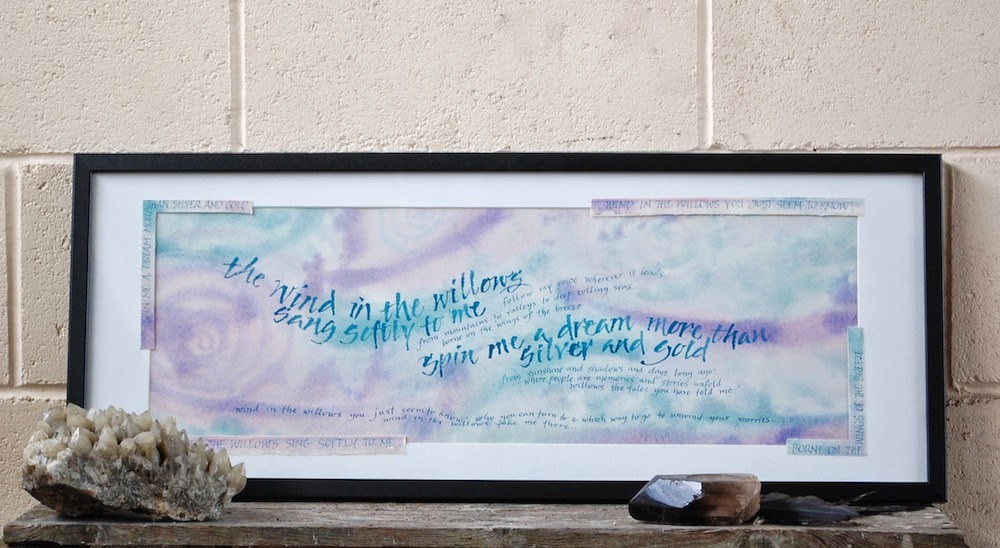 THAN SILVER AND GOLD
SPIN ME A DREAM MORE
WIND IN THE WILLOWS YOU JUST SEEM TO KNOW
the wind in the willows
sang softly to me
follow my voice wherever it leads
from mountains to valleys to deep rolling seas
borne on the wings of the breeze
spin me a dream more than
silver and gold
from sunshine and shadows and days long ago
where people are memories and stories unfold
willows the tales you have told me
wind in the willows you just seem to know who you can turn to & which way to go to unwind your worries
wind in the willows take me there
THE WILLOWS SING SOFTLY TO ME
BORNE ON THE
WINGS OF THE BREEZE